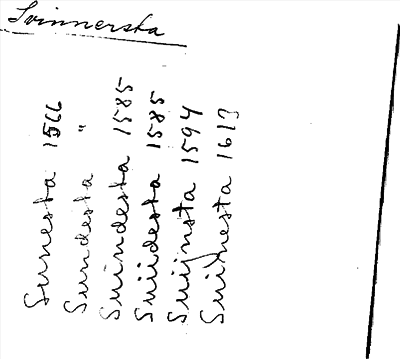 Svinnersta
Sunesta 1566
Sundesta "
Suindesta 1585
Suiidesta 1585
Suijnsta 1594
Suiinesta 1613